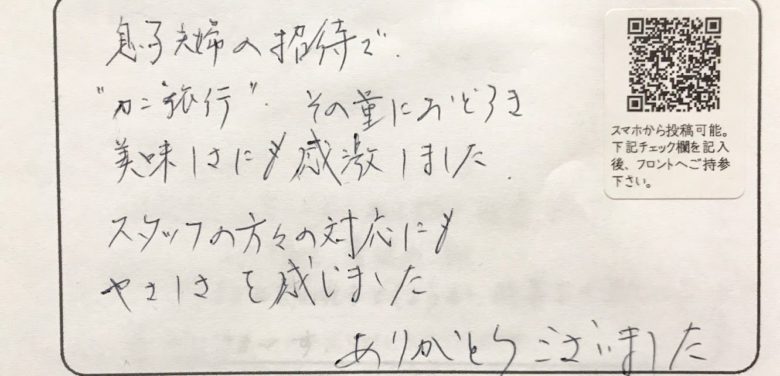 息子夫婦の招待で.
"カニ旅行". その量におどろき
美味しさにも感激しました.
スタッフの方々の対応にも
やさしさを感じました
ありがとうございました
スマホから投稿可能。
下記チェック欄を記入
後、フロントへご持参
下さい。